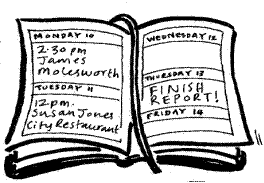 MONDAY 10
2.30 pm
James
Molesworth
TUESDAY 11
12pm.
Susan Jones
City Restaurant
WEDNESDAY 12
THURSDAY 13
FINISH
REPORT!
FRIDAY 14